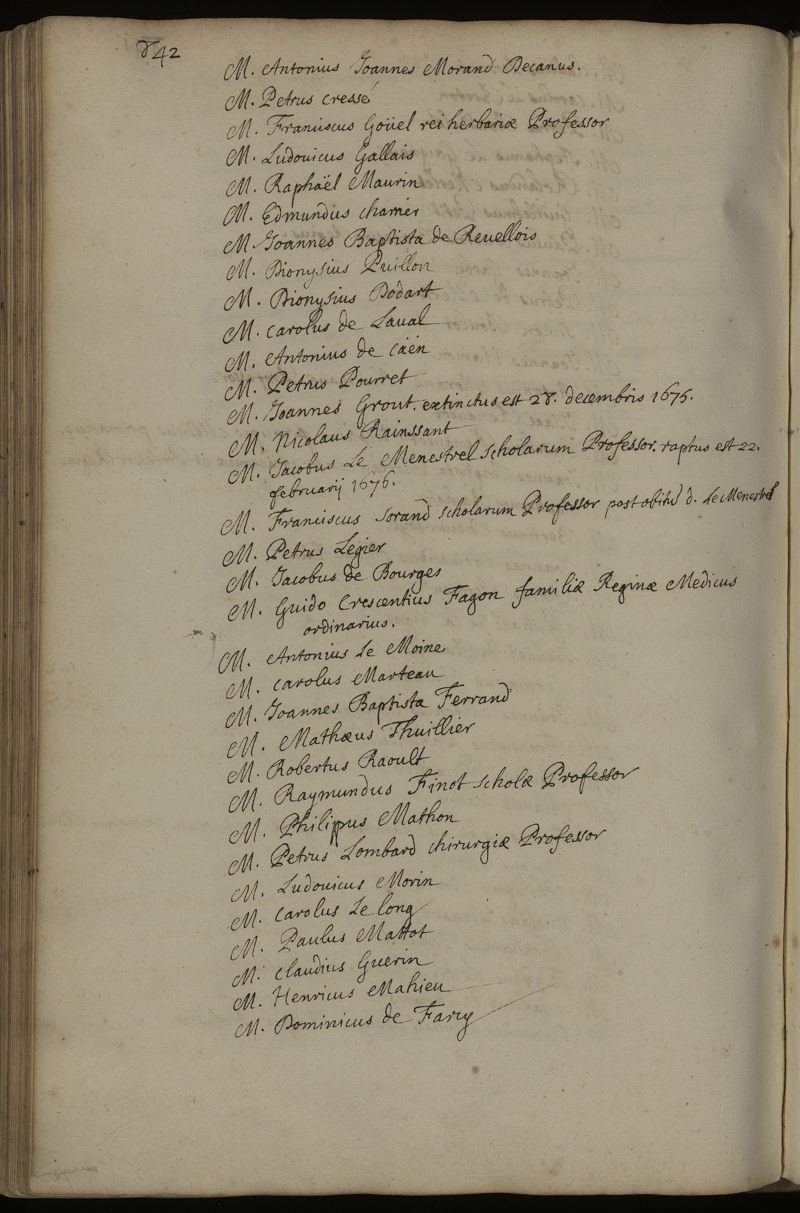 842
M. Antonius Joannes Morand Decanus.
M. Petrus Cressé
M. Franciscus Goüel rei herbariæ Professor
M. Ludouicus Gallais
M. Raphaël Maurin
M. Edmundus charier
M. Joannes Baptista de Reuellois
M. Dionysius Puillon
M. Dionysius Dodart
M. Carolus de Laual
M. Antonius de Caën
M. Petrus Pourret
M. Joannes Grout. extinctus est 28. decembris 1675.
M. Nicolaus Rainssant
M. Jacobus Le Menestrel scholarum Professor. raptus est 22.
februarij 1676.
M. Franciscus Sorand scholarum Professor post obitū d. Le Menestrel
M. Petrus Legier
M. Jacobus de Bourges
M. Guido Crescentius Fagon familiæ Reginæ Medicus
ordinarius.
M. Antonius Le Moine
M. Carolus Marteau
M. Joannes Baptista Ferrand
M. Mathæus Thuillier
M. Robertus Raoult
M. Raymundus Finot scholæ Professor
M. Philippus Mathon
M. Petrus Lombard chirurgiæ Professor
M. Ludouicus Morin
M. Carolus Le long
M. Paulus Mattot
M. Claudius Guerin
M. Henricus Mahieu
M. Dominicus de Farcy